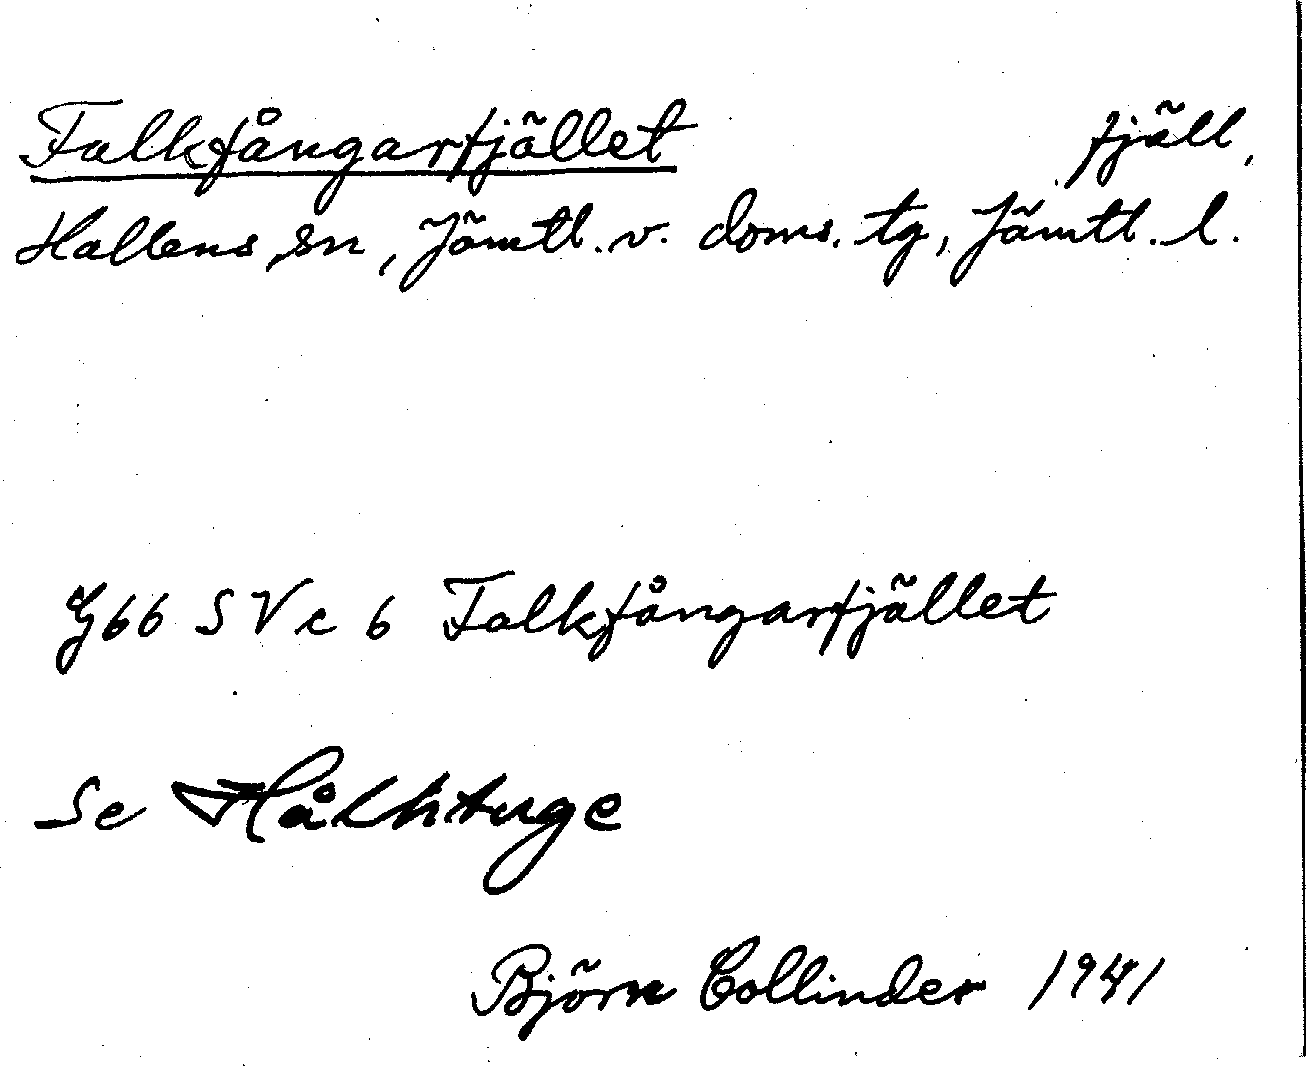 Falkfångarfjället fjäll,
Hallens sn, Jämtl. v. doms. tg, Jämtl. l.
G66 SV c 6 Falkfångarfjället
Se
Björn Collinder 1941